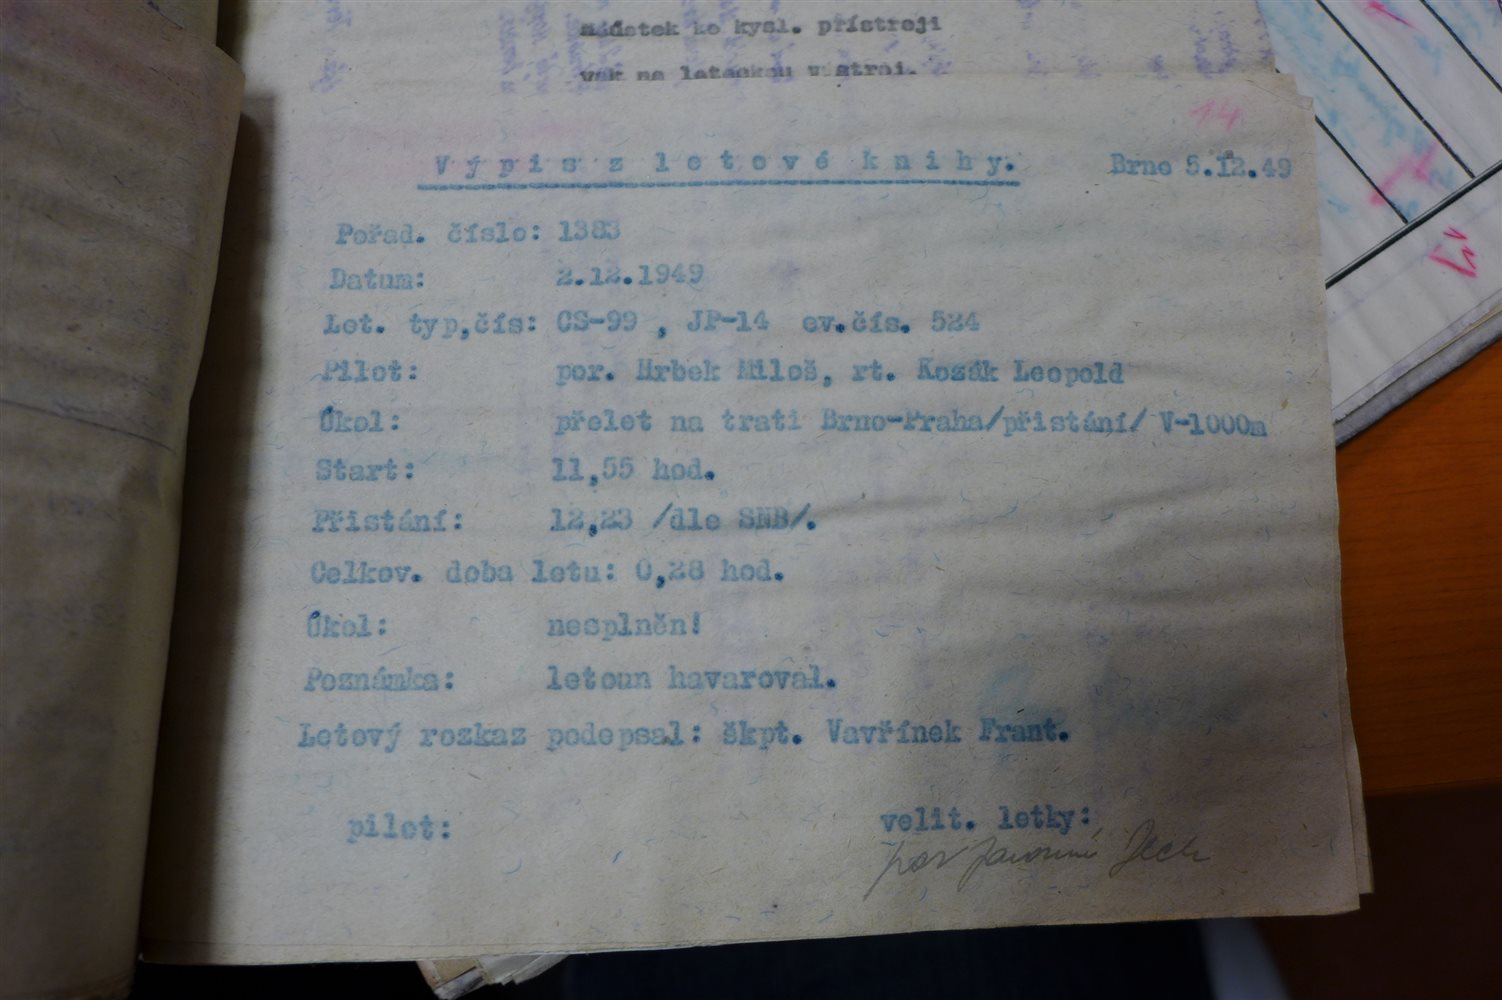 náústek ke kysl. přístroji
vak na leteckou výstroj.
14
Výpis z letové knihy. Brno 5.12.49
Pořad. číslo: 1383
Datum: 2.12.1949
Let. typ,čís: CS-99 , JP-14 ev.čís. 524
Pilot: por. Hrbek Miloš, rt. Kozák Leopold
Úkol: přelet na trati Brno-Praha/přistání/ V-1000m
Start: 11,55 hod.
Přistání: 12,23 /dle SNB/.
Celkov. doba letu: 0,28 hod.
Úkol: nesplněn!
Poznámka: letoun havaroval.
Letový rozkaz podepsal: škpt. Vavřínek Frant.
pilot: velit. letky:
por